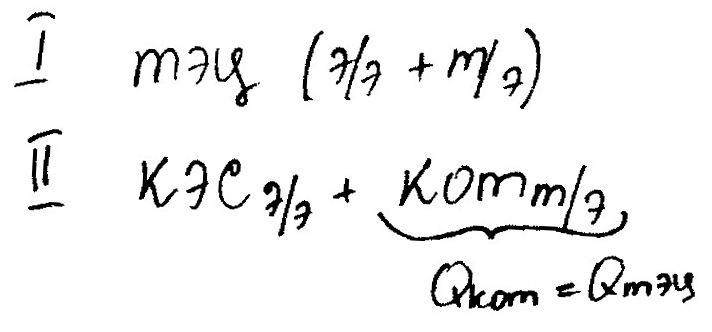 I тэц (э/э + т/э)
II КЭС э/э + КОТ т/э
Qкот = Qтэц